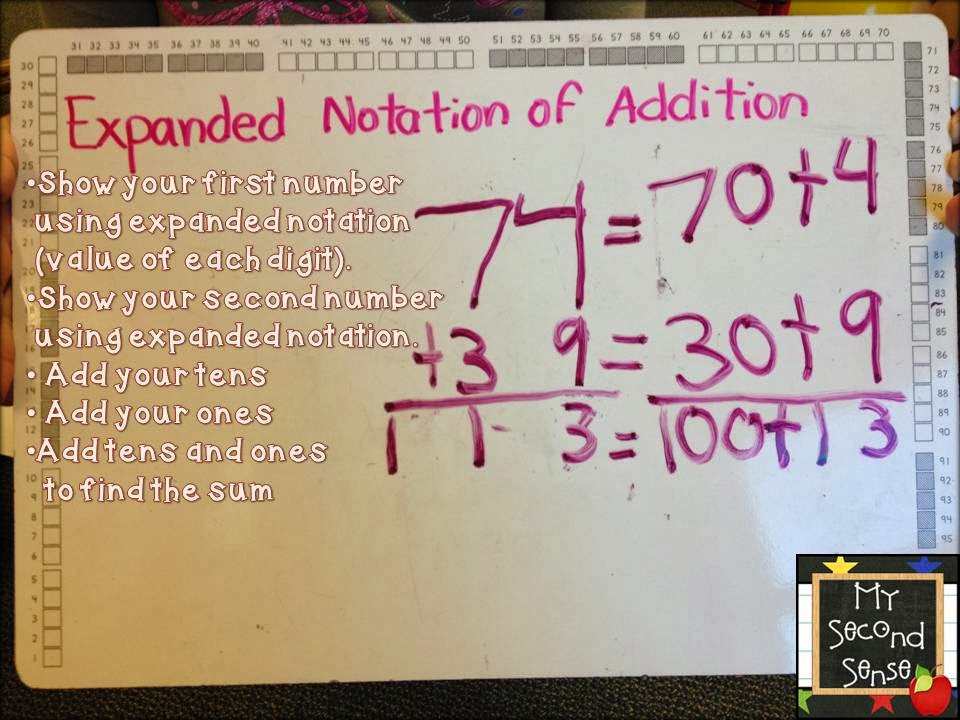 31 32 33 34 35 36 37 38 39 40 41 42 43 44 45 46 47 48 49 50 51 52 53 54 55 56 57 58 59 60 61 62 63 64 65 66 67 68 69 70
Expanded Notation of Addition
•Show your first number
using expanded notation
(value of each digit).
•Show your second number
using expanded notation.
• Add your tens
• Add your ones
•Add tens and ones
to find the sum
74 = 70+4
+3 9 = 30+9
1 1 3 = 100+1 3
30
29
28
27
26
25
24
23
22
21
20
16
14
10
9
8
7
6
5
4
3
2
1
71
72
73
74
75
76
77
78
79
80
81
82
83
84
85
86
87
88
89
90
91
92
93
94
95
My
Second
Sense